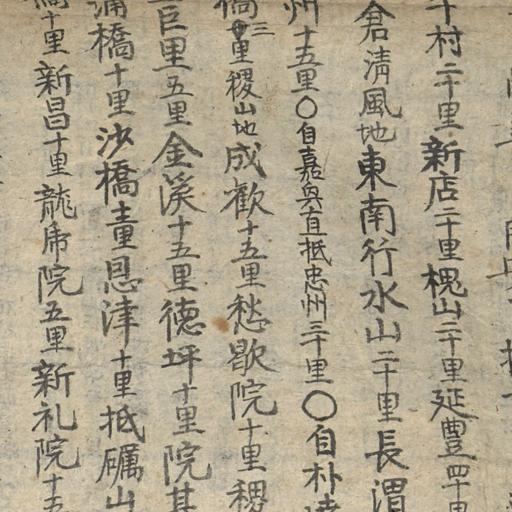 十村二十里新店二十里槐山二十里延豊四十里
倉清風地東南行水山二十里長渭
州十五里〇自嘉興直抵忠州三十里〇自朴
橋三十里稷山地成歡十五里愁歇院十里稷
巨里五里金溪十五里德坪十里院基
浦橋十里沙橋十五里恩津十里抵礪山
十里新昌十里龍席院五里新礼院十五